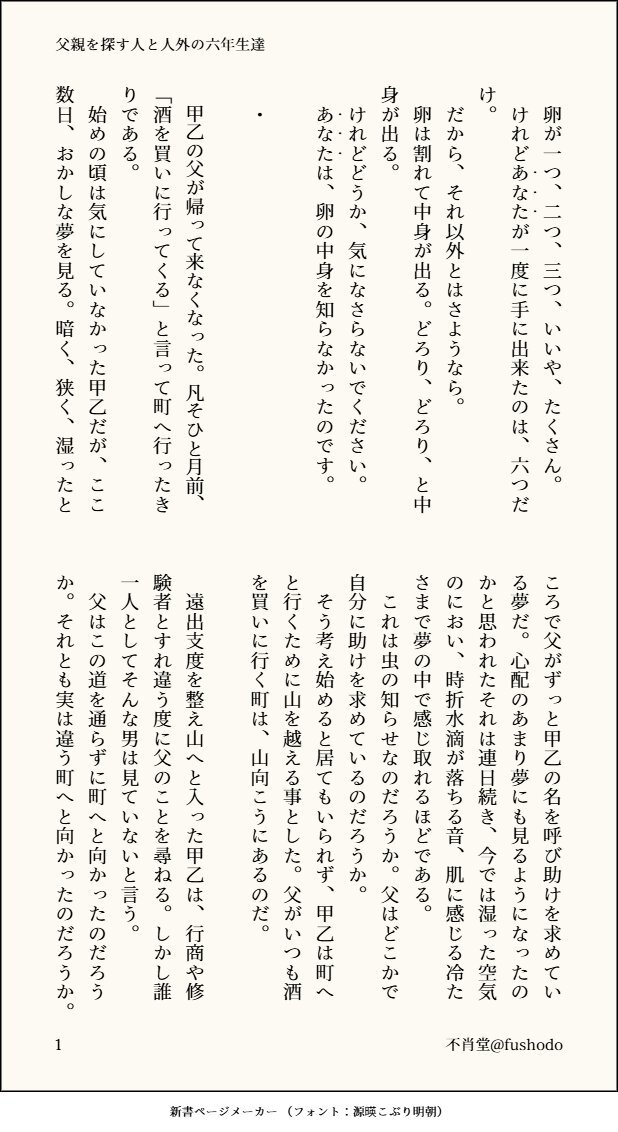 父親を探す人と人外の六年生達
　卵が一つ、二つ、三つ、いいや、たくさん。
　けれどあなたが一度に手に出来たのは、六つだ
け。
　だから、それ以外とはさようなら。
　卵は割れて中身が出る。どろり、どろり、と中
身が出る。
　けれどどうか、気になさらないでください。
　あなたは、卵の中身を知らなかったのです。
・
　甲乙の父が帰って来なくなった。凡そひと月前、
「酒を買いに行ってくる」と言って町へ行ったき
りである。
　始めの頃は気にしていなかった甲乙だが、ここ
数日、おかしな夢を見る。暗く、狭く、湿ったと
ころで父がずっと甲乙の名を呼び助けを求めてい
る夢だ。心配のあまり夢にも見るようになったの
かと思われたそれは連日続き、今では湿った空気
のにおい、時折水滴が落ちる音、肌に感じる冷た
さまで夢の中で感じ取れるほどである。
　これは虫の知らせなのだろうか。父はどこかで
自分に助けを求めているのだろうか。
　そう考え始めると居てもいられず、甲乙は町へ
と行くために山を越える事とした。父がいつも酒
を買いに行く町は、山向こうにあるのだ。
　遠出支度を整え山へと入った甲乙は、行商や修
験者とすれ違う度に父のことを尋ねる。しかし誰
一人としてそんな男は見ていないと言う。
　父はこの道を通らずに町へと向かったのだろう
か。それとも実は違う町へと向かったのだろうか。
1
不肖堂@fushodo
新書ページメーカー（フォント：源暎こぶり明朝）